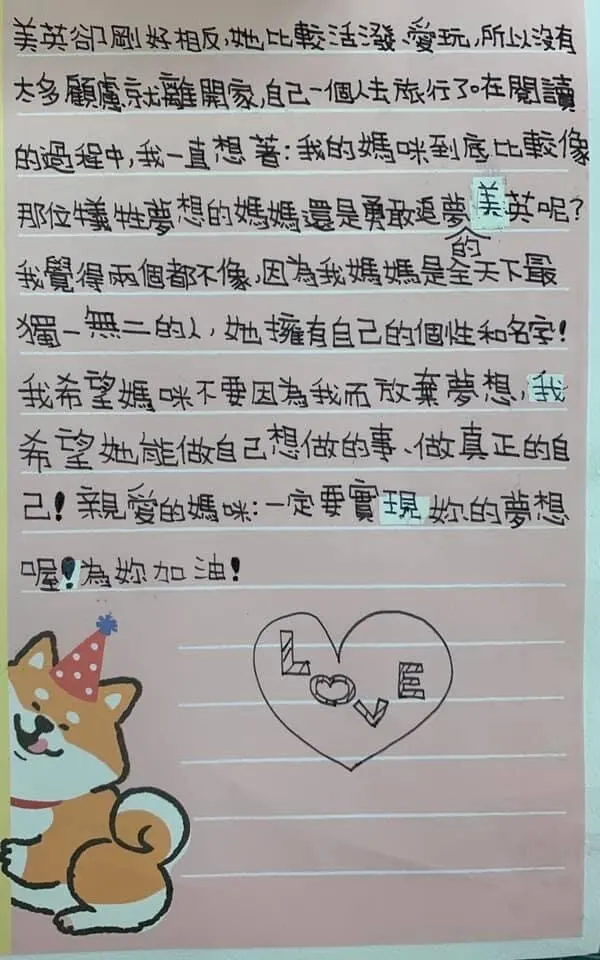 美英卻剛好相反,她比較活潑、愛玩,所以沒有
太多顧慮就離開家,自己一個人去旅行了。在閱讀
的過程中,我一直想著:我的媽咪到底比較像
那位犧牲夢想的媽媽還是勇敢追夢的美英呢?
我覺得兩個都不像,因為我媽媽是全天下最
獨一無二的人,她擁有自己的個性和名字!
我希望媽咪不要因為我而放棄夢想,我
希望她能做自己想做的事、做真正的自
己!親愛的媽咪:一定要實現妳的夢想
喔!為妳加油!
LOVE